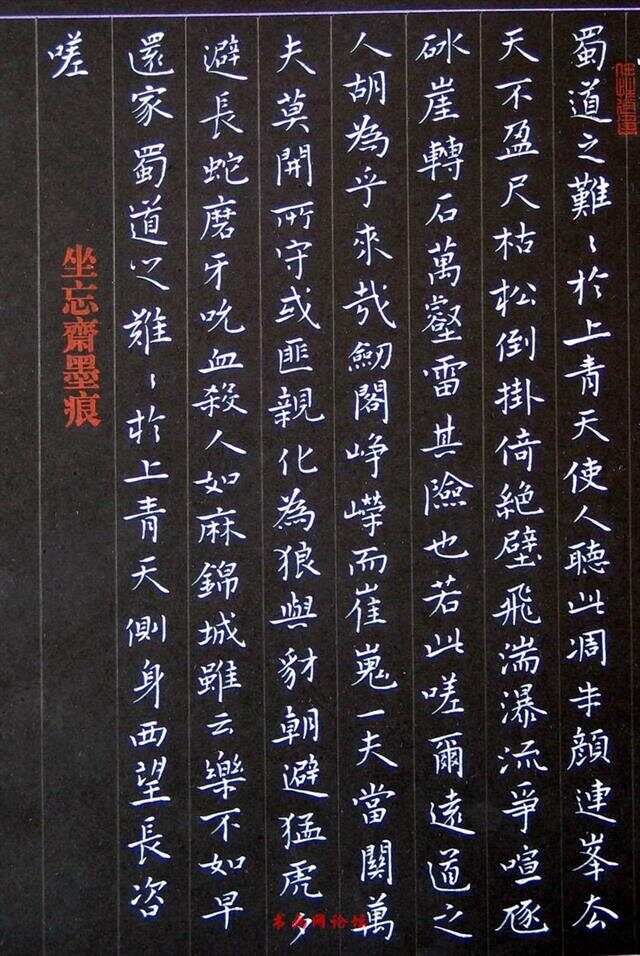 蜀道之難〻於上青天使人聽此凋朱顏連峯去
天不盈尺枯松倒掛倚絕壁飛湍瀑流爭喧豗
砯崖轉石萬壑雷其險也若此嗟爾遠道之
人胡為乎來哉劒閣崢嶸而崔嵬一夫當關萬
夫莫開所守或匪親化為狼與豺朝避猛虎夕
避長蛇磨牙吮血殺人如麻錦城雖云樂不如早
還家蜀道之難〻於上青天側身西望長咨
嗟
坐忘齋墨痕
书法网论坛